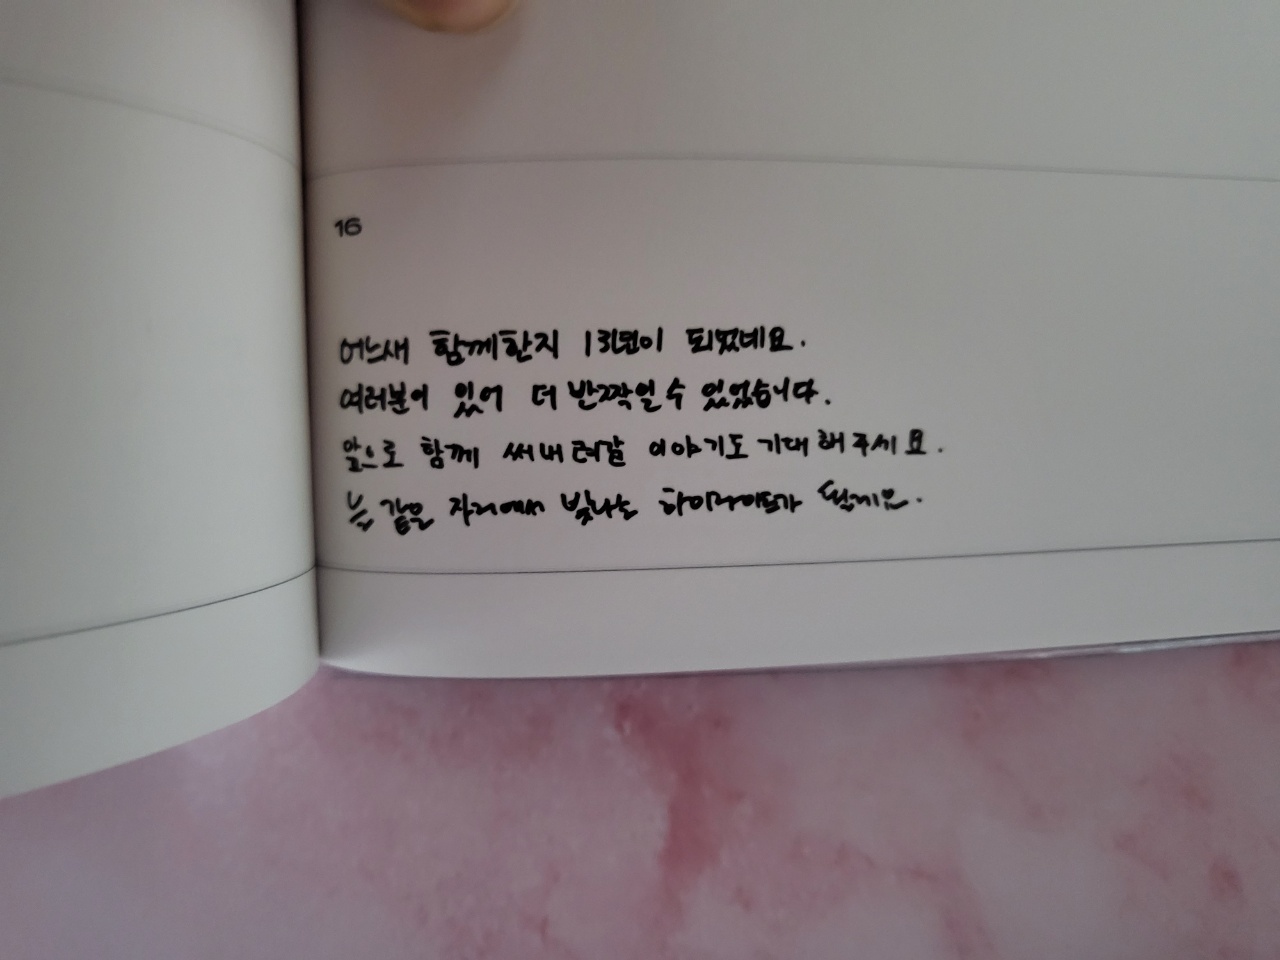 16
어느새 함께한지 13년이 되었네요.
여러분이 있어 더 반짝일 수 있었습니다.
앞으로 함께 써내려갈 이야기도 기대해주세요.
늘 같은 자리에서 빛나는 하이라이트가 될게요.